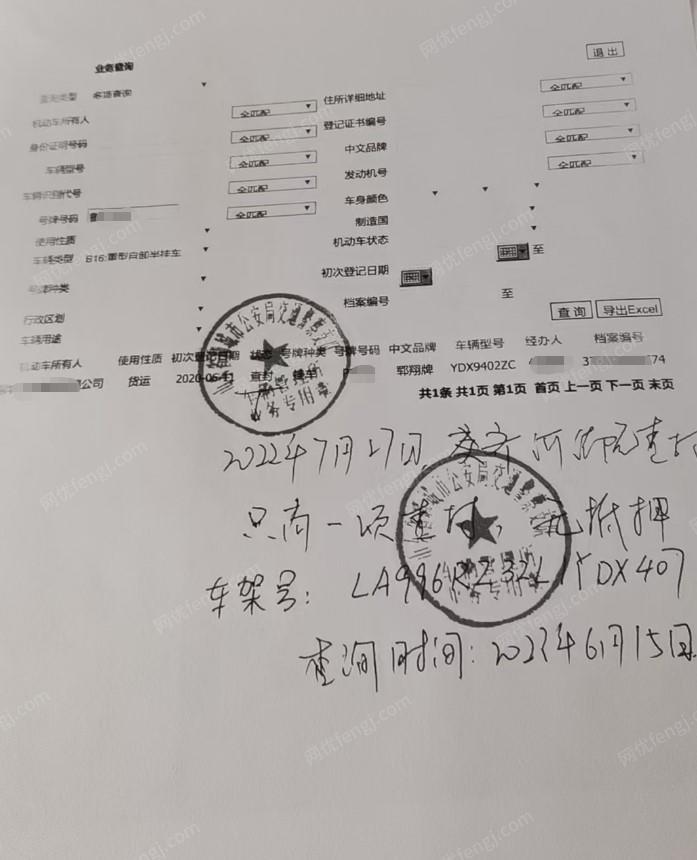 业务查询
退 出
查询类型 多项查询
机动车所有人 全匹配 住所详细地址 全匹配
身份证明号码 全匹配 登记证书编号 全匹配
车辆型号 全匹配 中文品牌 全匹配
车辆识别代号 全匹配 发动机号 全匹配
号牌号码 全匹配 车身颜色
使用性质 制造国
车辆类型 B16:重型自卸半挂车 机动车状态
号牌种类 初次登记日期 至
行政区划 档案编号 至
车辆用途 查 询 导出Excel
机动车所有人 使用性质 初次登记日期 状态 号牌种类 号牌号码 中文品牌 车辆型号 经办人 档案编号
公司 货运 2020-06-11 查封 挂车 郓翔牌 YDX9402ZC 74
共1条 共1页 第1页 首页 上一页 下一页 末页
市公安局交通警察支
业务专用章
2022年7月27日
只有一项查封, 无抵押
市公安局交通警察
车架号: LA996RZ32L YDX407
查询时间: 2023年6月15日
网优fengj.com